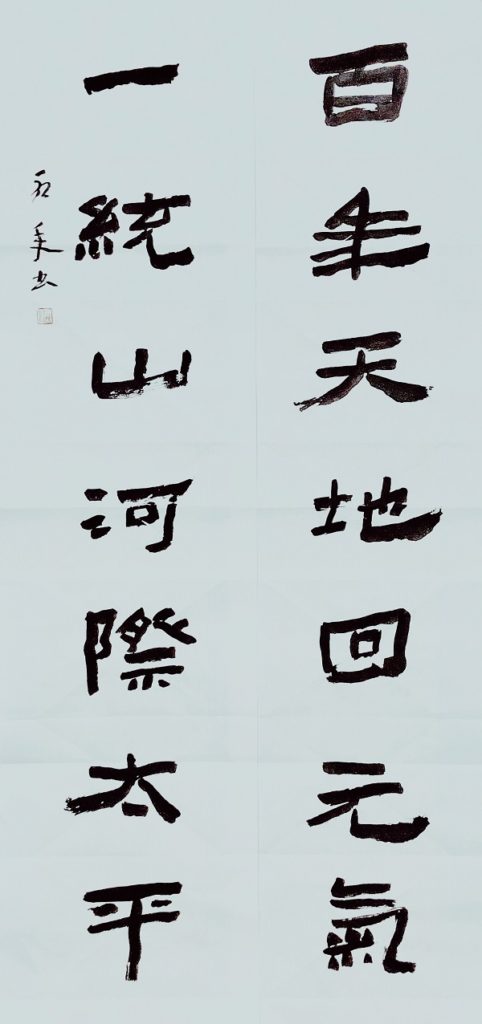 百年天地回元氣
一統山河際太平
书